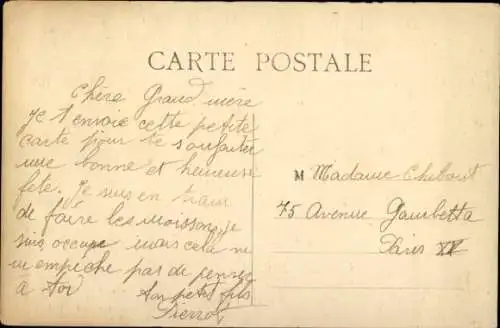 CARTE POSTALE
Chère Grand mère
Je t'envoie cette petite
carte pour te souhaiter
une bonne et heureuse
fête. Je suis en train
de faire les moissons, je
suis occupé mais cela ne
m'empiche pas de penser
a toi
ton petit fils
Pierrot
M Madame
75 Avenue Gambetta
Paris XX